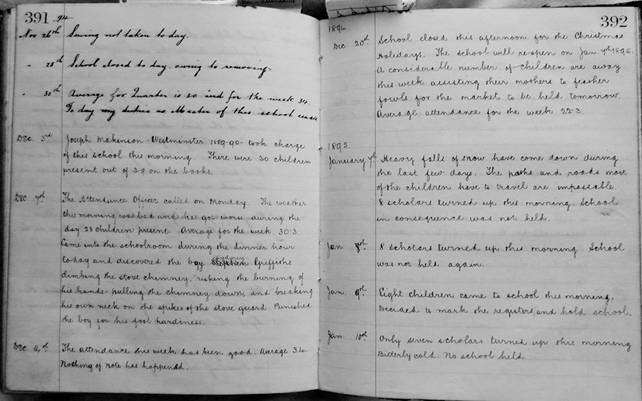 391
94
Nov 26th Sewing not taken to day.
" 28th School closed to day owing to removing.
" 30th Average for Quarter is 30 and for the week 34.
To day my duties as Master of this school cease
Dec 3rd Joseph Makinson Westminster 1889-90 took charge
of this school this morning. There were 30 children
present out of 39 on the books.
Dec 7th The Attendance Officer called on Monday. The weather
this morning was bad and has got worse during the
day 28 children present. Average for the week 30.3
Came into the schoolroom during the dinner hour
today and discovered the boy Griffiths
climbing the stove chimney, risking the burning of
his hands pulling the chimney down, and breaking
his own neck on the spikes of the stove guard. Punished
the boy for his fool hardiness.
Dec The attendance this week has been good. Average 34
Nothing of note has happened.
392
1894
Dec 20th School closed this afternoon for the Christmas
Holidays. The school will reopen on Jan 7th 1895.
A considerable number of children are away
this week assisting their mothers to feather
fowls for the market to be held tomorrow.
Average attendance for the week 22.3
1895
January 7th Heavy falls of snow have come down during
the last few days. The paths and roads most
of the children have to travel are impassable.
8 scholars turned up this morning. School
in consequence was not held.
Jan. 8th 8 scholars turned up this morning. School
was not held again.
Jan. 9th Eight children came to school this morning.
Decided to mark the registers and hold school.
Jan. 10th Only seven scholars turned up this morning
Bitterly cold. No school held.